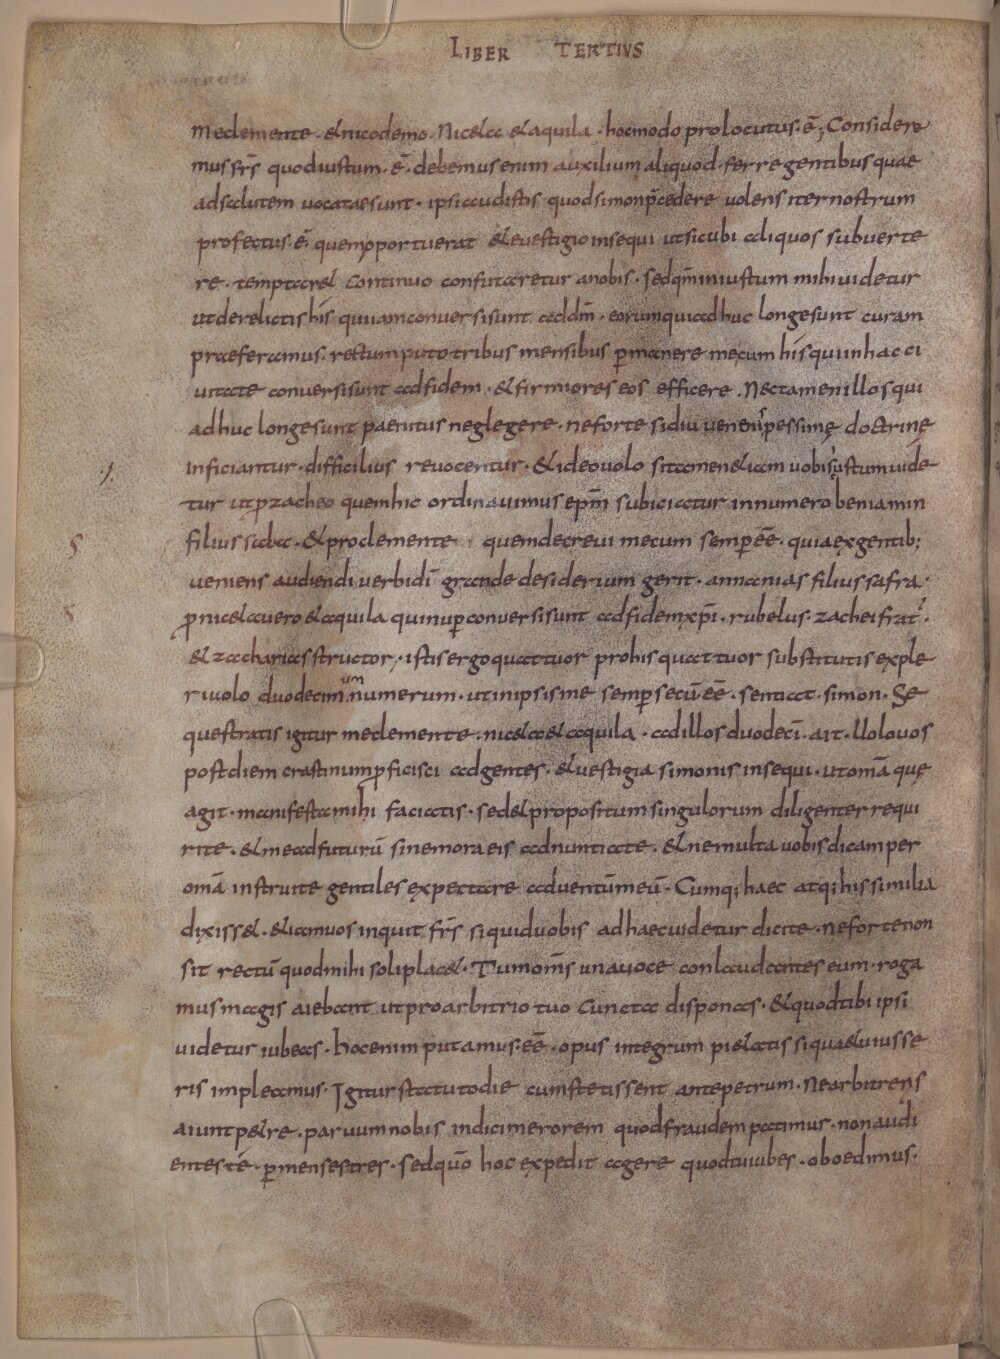 LIBER TERTIVS
meclemente · & nicodemo · Nic&a & aquila · hocmodo prolocutus · ē; Considere
mus frs̄ quodiustum · ē · debemus enim auxilium aliquod · ferre gentibus quae
ad salutem vocatae sunt · ipsi audistis quod simon p̄cedere volens iter nostrum
profectus · ē · quem oportuerat & evestigio insequi ut sicubi aliquos subverte
re · temptar& continuo confutaretur a nobis · sed qm̄ iniustum mihi videtur
ut derelictis his qui iam conversi sunt ad dm̄ · eorum qui adhuc longe sunt curam
praeferamus · rectum puto tribus mensibus ꝑmanere mecum his qui in hac ci
vitate conversi sunt ad fidem · & firmiores eos efficere · Nec tamen illos qui
adhuc longe sunt paenitus neglegere · ne forte si diu veneni pessimę doctrinę
inficiantur · difficilius revocentur · & ideo volo si tamen & iam vobis iustum vide
tur ut ꝓ zacheo quem hic ordinavimus epm̄ subiciatur in numero beniamin
filius saba · & pro clemente quem decrevi mecum semꝑ · ēē · quia ex gentib;
veniens audiendi verbi dī grande desiderium gerit · annanias filius safra ·
ꝓ nic&a vero & aquila qui nuꝑ conversi sunt ad fidem xp̄i · rubelus · zachei frat̄ ·
& zacharias structor · istis ergo quattuor pro his quattuor substitutis exple
ri volo duodecimum numerum · ut in ipsis me semꝑ secū · ēē · sentiat · simon · Se
questratis igitur me clemente · nic&a & aquila · ad illos duodecī · ait · Uolo vos
post diem crastinum ꝓficisci ad gentes · & vestigia simonis insequi · ut omā quę
agit · manifesta mihi faciatis · sed & propositum singulorum diligenter requi
rite · & me ad futurū sine mora eis adnuntiate · & ne multa vobis dicam per
omā instruite gentiles expectare adventum meū · Cumq; haec atq; his similia
dixiss& · & iam vos inquit frs̄ si quid vobis ad haec videtur dicite · ne forte non
sit rectū quod mihi soli plac& · Tum om̄s una voce conlaudantes eum · roga
mus magis aiebant ut pro arbitrio tuo cuncta disponas · & quod tibi ipsi
videtur iubeas · hoc enim putamus · ēē · opus integrum pi&atis si quae tu iusse
ris impleamus · Igitur statuto die cum stetissent ante petrum · Ne arbitreris
aiunt p&re · parvum nobis indici merorem quod fraudem patimus · non audi
entes té · ꝑ menses tres · sed quō hoc expedit agere quod tu iubes · oboedimus ·